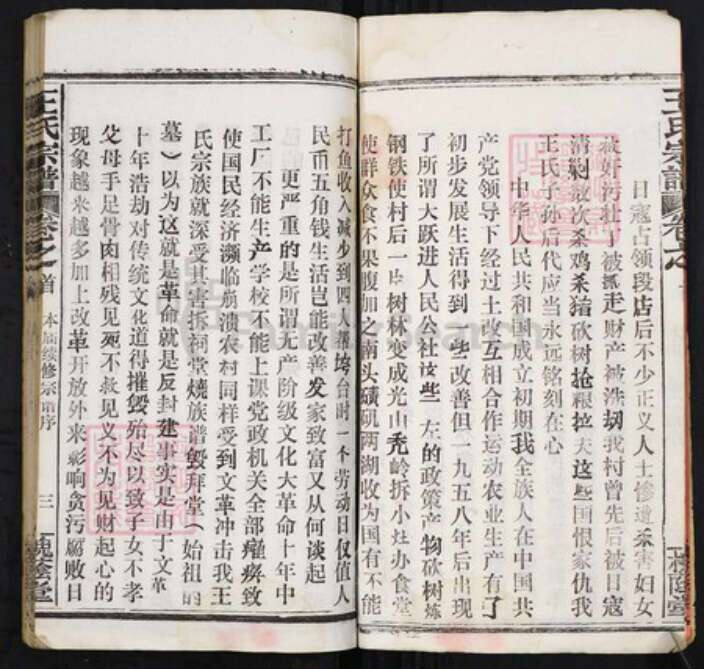 王氏宗譜
卷之首
日寇占领段店后不少正义人士惨遭杀害妇女
被奸污壮丁被抓走财产被洗劫我村曾先后被日寇
清剿数次杀鸡杀猪砍树抢粮拉夫这些国恨家仇我
王氏子孙后代应当永远铭刻在心
中华人民共和国成立初期我全族人在中国共
产党领导下经过土改互相合作运动农业生产有了
初步发展生活得到一些改善但一九五八年后出现
了所谓大跃进人民公社这些一左的政策产物砍树炼
钢铁使村后一片树林变成光山秃岭拆小灶办食堂
使群众食不果腹加之南头碛矶两湖收为国有不能
打鱼收入减少到四人基垮台时一个劳动日仅值人
民币五角钱生活岂能改善发家致富又从何谈起
更严重的是所谓无产阶级文化大革命十年中
工厂不能生产学校不能上课党政机关全部瘫痪致
使国民经济濒临崩溃农村同样受到文革冲击我王
氏宗族就深受其害拆祠堂烧族谱毁拜堂（始祖的
墓）以为这就是革命就是反封建事实是由于文革
十年浩劫对传统文化道得摧毁殆尽以致子女不孝
父母手足骨肉相残见死不救见义不为见财起心的
现象越来越多加上改革开放外来影响贪污腐败日
王氏宗譜
卷之首
本届续修宗谱序
三
槐蔭堂
槐蔭堂
FamilySearch